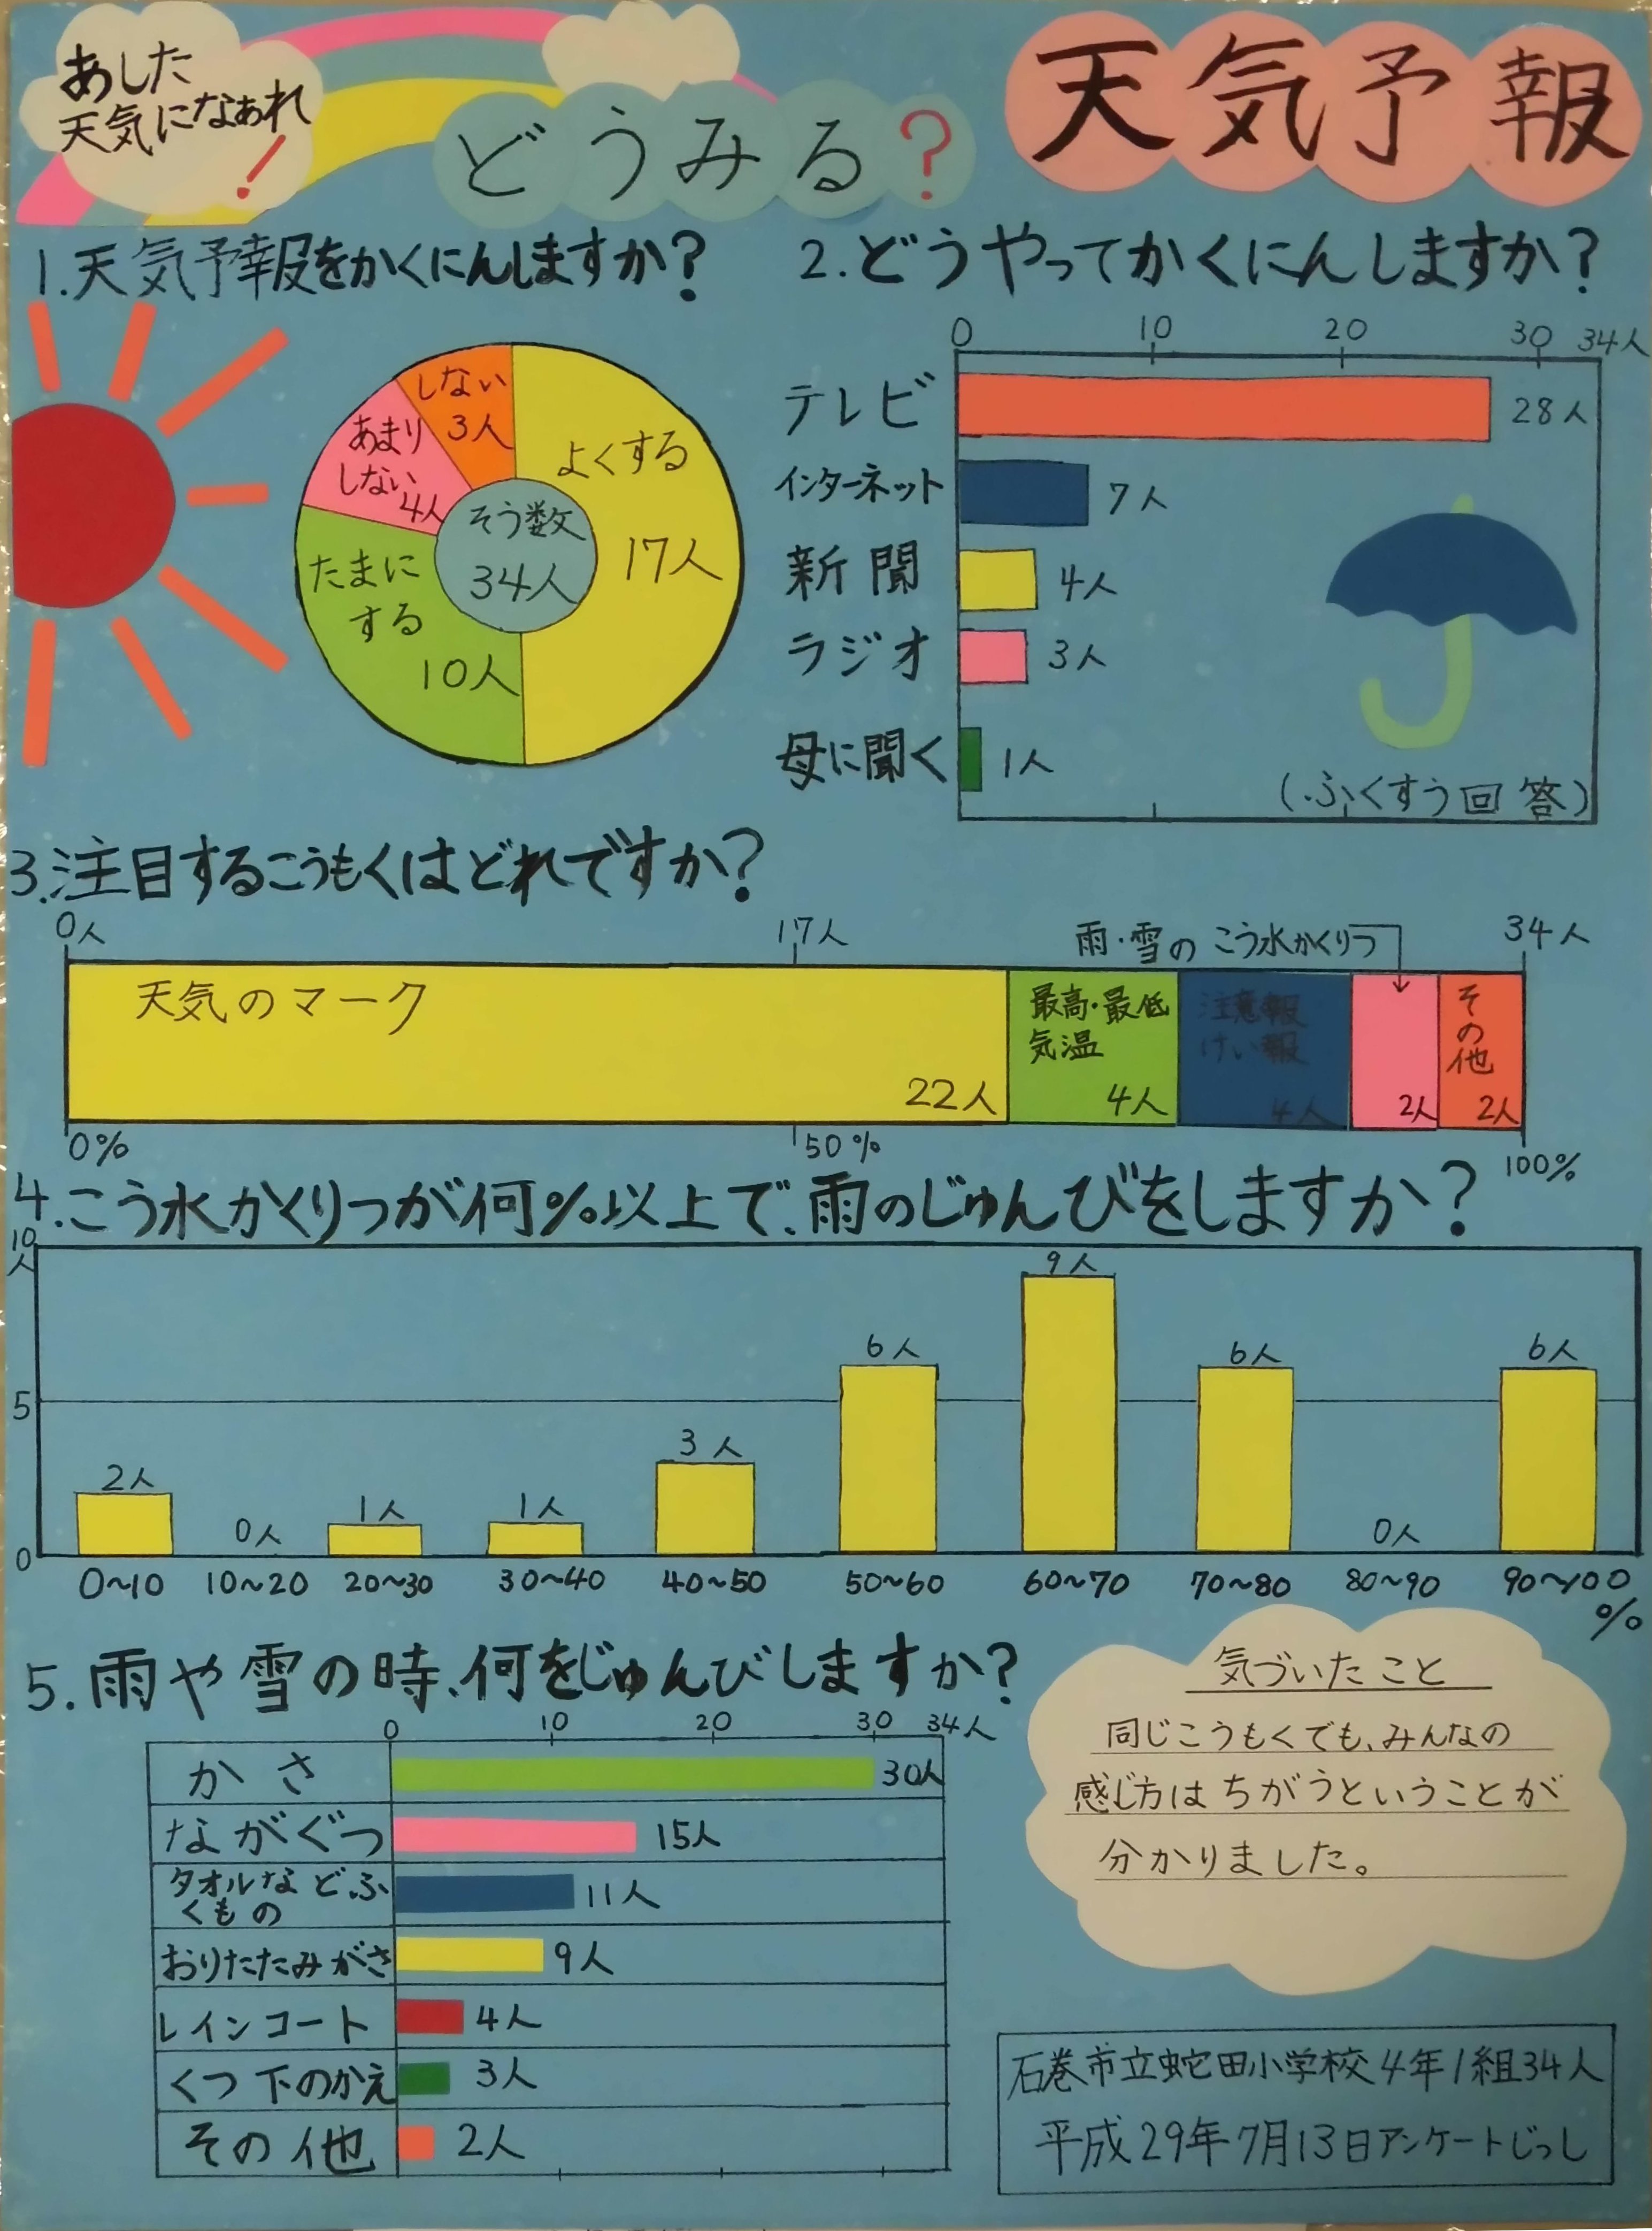 あした
天気になあれ
!
どうみる?
天気予報
1.天気予報をかくにんしますか?
しない
3人
あまり
しない
4人
よくする
17人
そう数
34人
たまに
する
10人
2.どうやってかくにんしますか?
0 10 20 30 34人
テレビ 28人
インターネット 7人
新聞 4人
ラジオ 3人
母に聞く 1人
(ふくすう回答)
3.注目するこうもくはどれですか?
0人 17人 34人
雨・雪のこう水かくりつ
天気のマーク
22人
最高・最低
気温
4人
注意報
けい報
4人
2人
その他
2人
0% 50% 100%
4.こう水かくりつが何%以上で、雨のじゅんびをしますか?
10
人
5
0
2人 0人 1人 1人 3人 6人 9人 6人 0人 6人
0~10 10~20 20~30 30~40 40~50 50~60 60~70 70~80 80~90 90~100
%
5.雨や雪の時、何をじゅんびしますか?
0 10 20 30 34人
かさ 30人
ながぐつ 15人
タオルなどふ
くもの 11人
おりたたみがさ 9人
レインコート 4人
くつ下のかえ 3人
その他 2人
気づいたこと
同じこうもくでも、みんなの
感じ方はちがうということが
分かりました。
石巻市立蛇田小学校4年1組34人
平成29年7月13日アンケートじっし